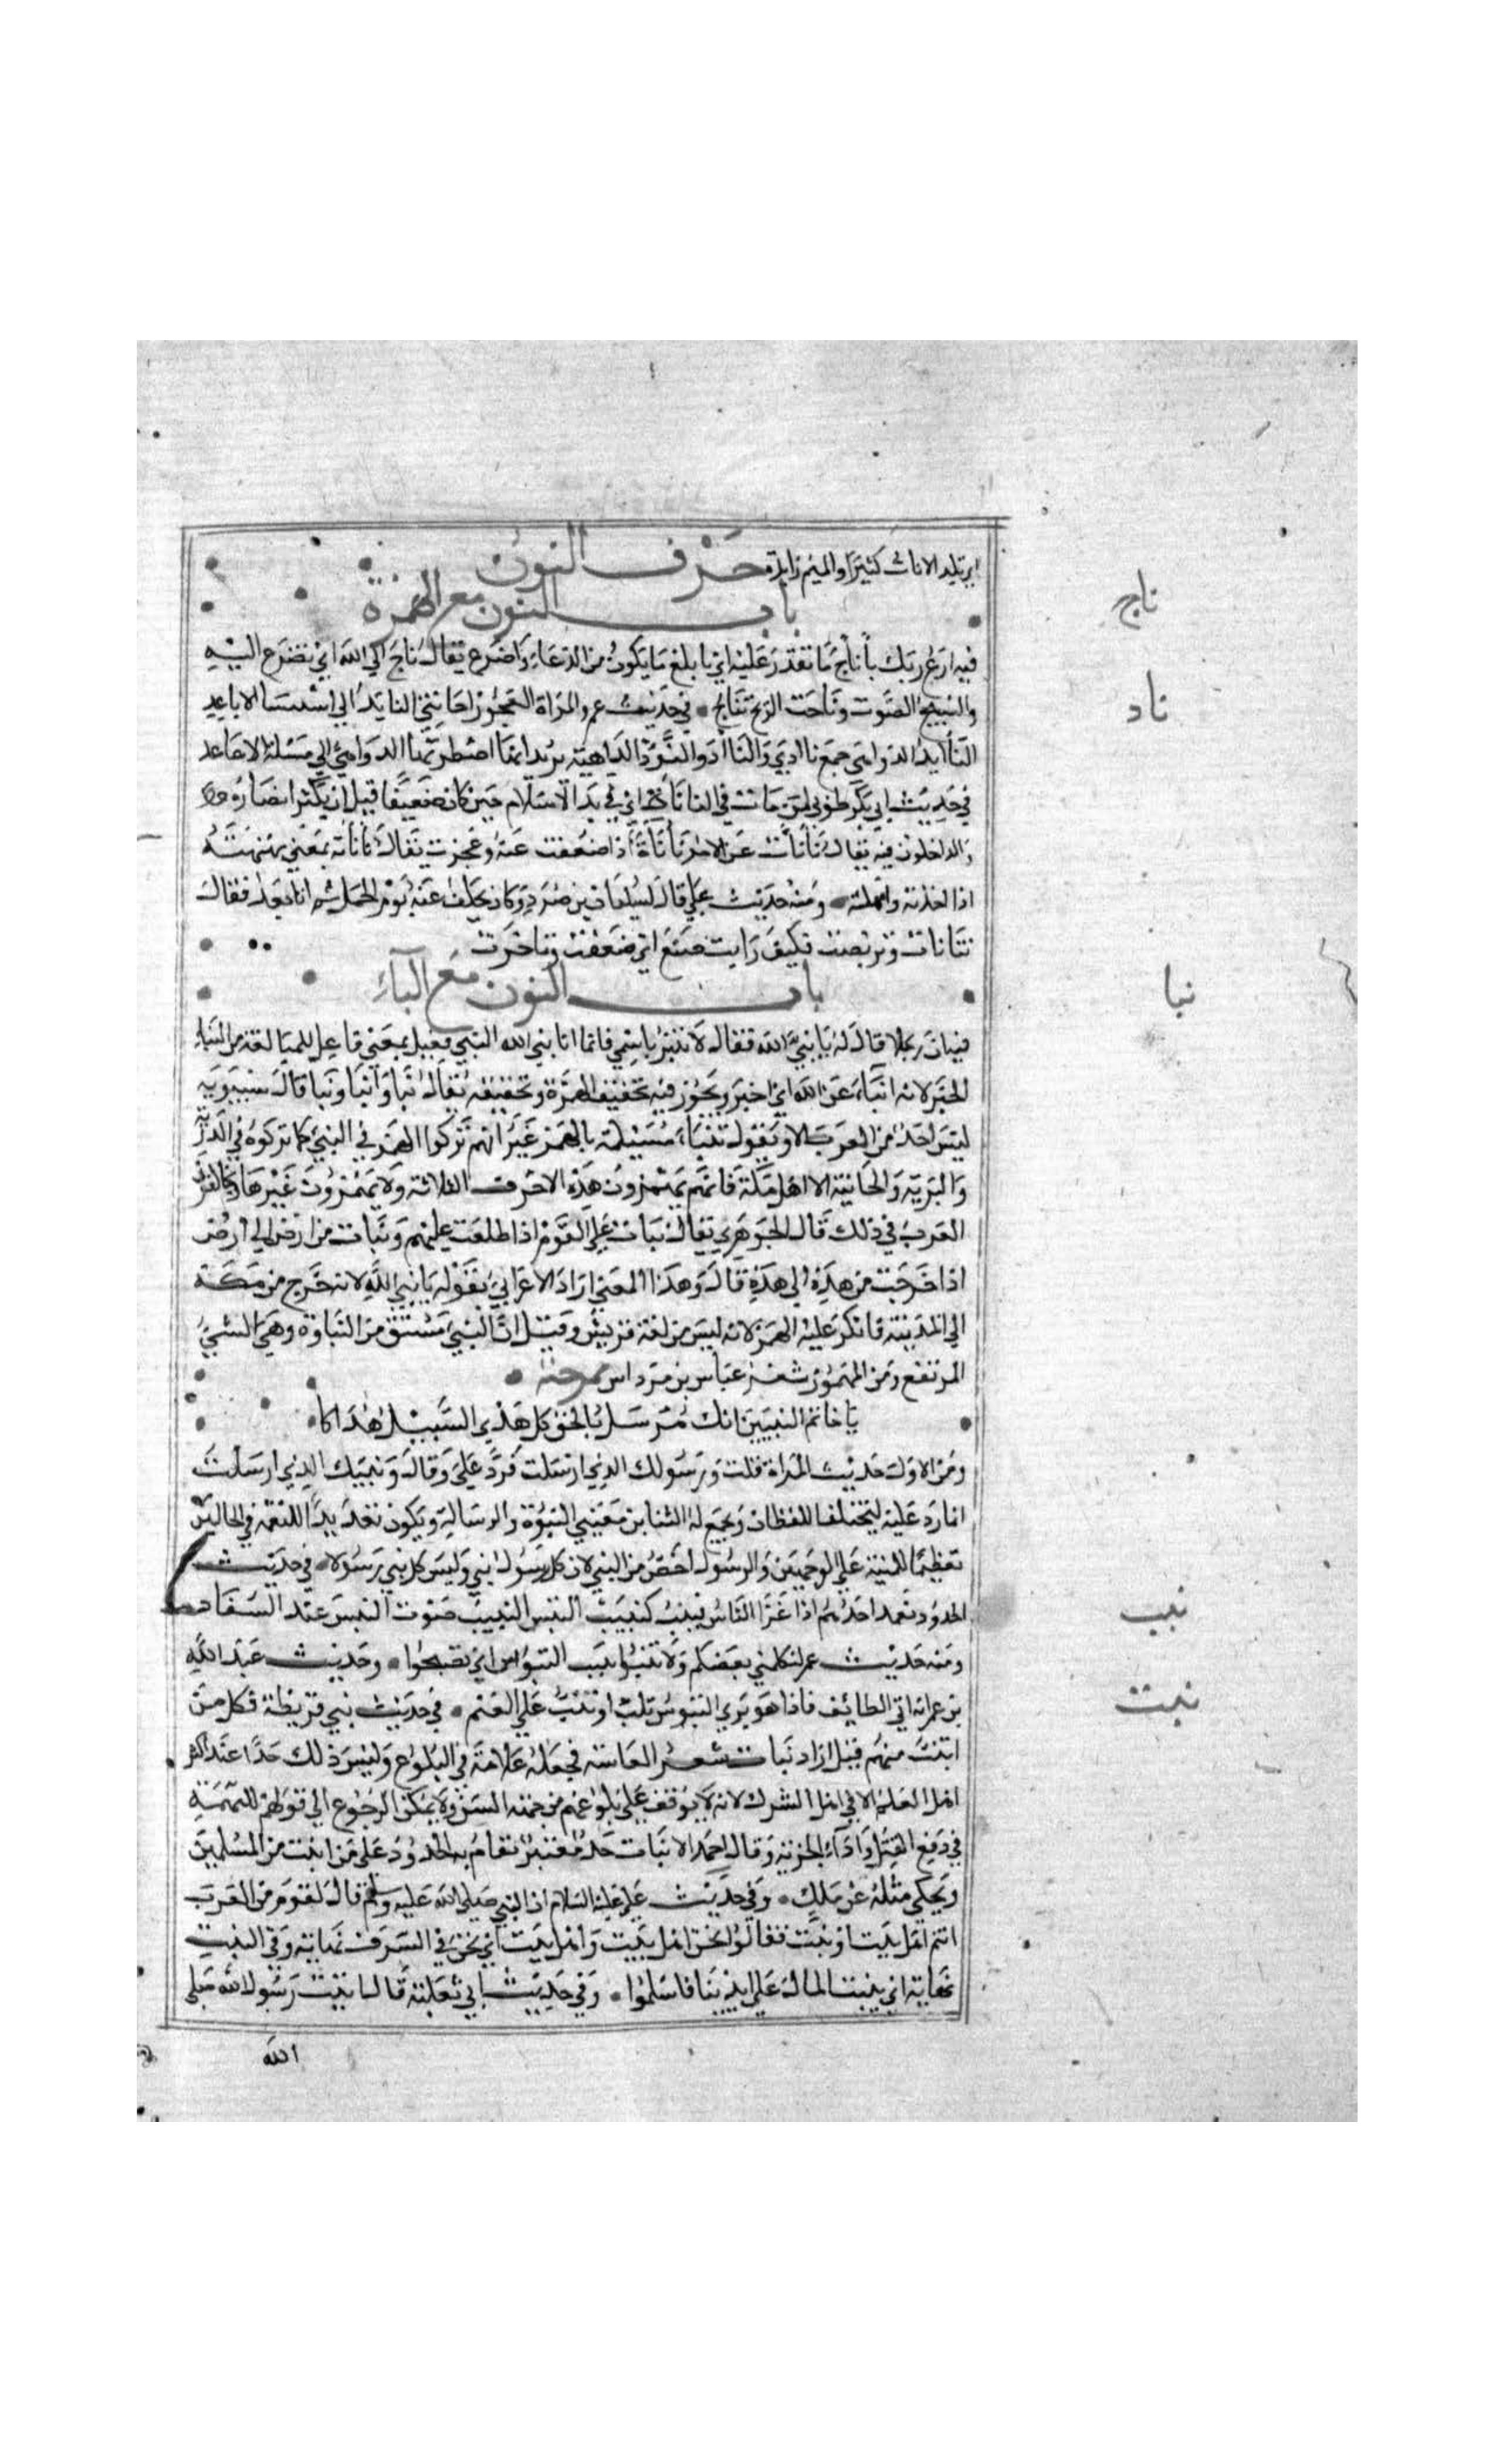 اي تلد الاناث كثيرا والميم زايدة حرف النون
باب النون مع الهمزة
فيه ادع ربك بأنأج ما تقدر عليه اي بابلغ ما يكون من الدعاء واضرع يقال ناج الي الله اي تضرع اليه
ناج
والنييج الصوت وناجت الريح تناج • في حديث عمر والمراة العجوز اجاءتني النايد الي استيشا الاباعد
ناد
النآيد الدواهي جمع نادي والنأد والنؤد الداهية يريد انها اضطرتها الدواهي الي مسئلة الاباعد
في حديث ابي بكر طوبي لمن مات في النانأة اي في بد الاسلام حين كان ضعيفا قبل ان يكثر انصاره
والداخلون فيه يقال نأنأت عن الامر نأنأة اذا ضعفت عنه وعجزت يقال نانأته بمعني نهنهته
اذا اخرته وامهلته • ومنه حديث علي قال لسليمان بن صرد وكان تخلف عنه يوم الجمل ثم اتاه بعد فقال
تنانات وتربصت فكيف رايت صنع اي ضعفت وتاخرت
باب النون مع الباء
نبا
فيه ان رجلا قال له يا نبيء الله فقال لا تنبز باسمي فانما انا نبي الله النبي فعيل بمعني فاعل للمبالغة من النباء
الخبر لانه انباء عن الله اي اخبر ويجوز فيه تخفيف الهمزة وتحقيقه يقال نبا وانبا ونبا قال سيبويه
ليس احد من العرب الا ويقول تنباء مسيلمة بالهمز غير انهم تركوا الهمز في النبي كما تركوه في الذرية
والبرية والخابية الا اهل مكة فانهم يهمزون هذه الاحرف الثلاثة ولا يهمزون غيرها ويخالفون
العرب في ذلك قال الجوهري يقال نبات علي القوم اذا طلعت عليهم ونبات من ارض الي ارض
اذا خرجت من هذه الي هذه قال وهذا المعني اراد الاعرابي بقوله يا نبيء الله لانه خرج من مكة
الي المدينة فانكر عليه الهمز لانه ليس من لغة قريش وقيل ان النبي مشتق من النباوة وهي الشيء
المرتفع ومن المهموز شعر عباس بن مرداس يمدحه •
يا خاتم النبيين انك مرسل بالحق كل هدي السبيل هداكا
ومن الاول حديث البراء قلت ورسولك الذي ارسلت فرد علي وقال ونبيك الذي ارسلت
انما رد عليه ليختلف اللفظان ويجمع له الثنا بين معنيي النبوة والرسالة ويكون تعديدا للنعمة في الحالين
تعظيما للمنة علي الوجهين والرسول اخص من النبي لان كل رسول نبي وليس كل نبي رسولا • في حديث
نبب
الحدود يعمد احدهم اذا غزا الناس فينب كنبيب التيس النبيب صوت التيس عند السفاد
ومنه حديث عمر ليكلمني بعضكم ولا تنبوا نبيب التيوس اي تصيحوا • وحديث عبد الله
نبت
بن عمر انه اتي الطائف فاذا هو يري التيوس تلب او تنب علي الغنم • في حديث بني قريظة فكل من
انبت منهم قتل اراد نبات شعر العانة فجعله علامة في البلوغ وليس ذلك حدا عند اكثر
اهل العلم الا في اهل الشرك لانه لا يوقف علي بلوغهم من جهة السن ولا يمكن الرجوع الي قولهم للتهمة
في دفع القتل واداء الجزية وقال احمد الانبات حد معتبر تقام به الحدود علي من انبت من المسلمين
ويحكي مثله عن ملك • وفي حديث علي عليه السلام ان النبي صلي الله عليه وسلم قال لقوم من العرب
انتم اهل بيت او نبت فقالوا نحن اهل بيت واهل نبت اي نحن في الشرف نهاية وفي النبت
نهاية اي ينبت المال علي ايدينا فاسلموا • وفي حديث ابي ثعلبة قال اتيت رسول الله صلي
الله